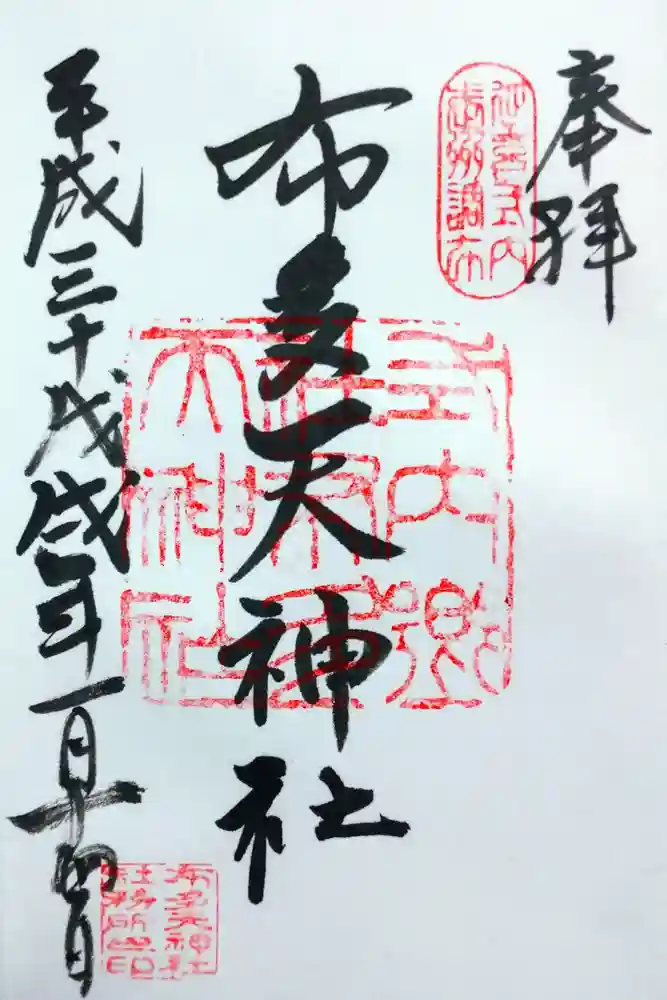 奉拝
延喜式内
武州調布
布多天神社
式内郷
社布多
天神社
平成三十戊戌年一月十四日
布多天神社
社務所之印